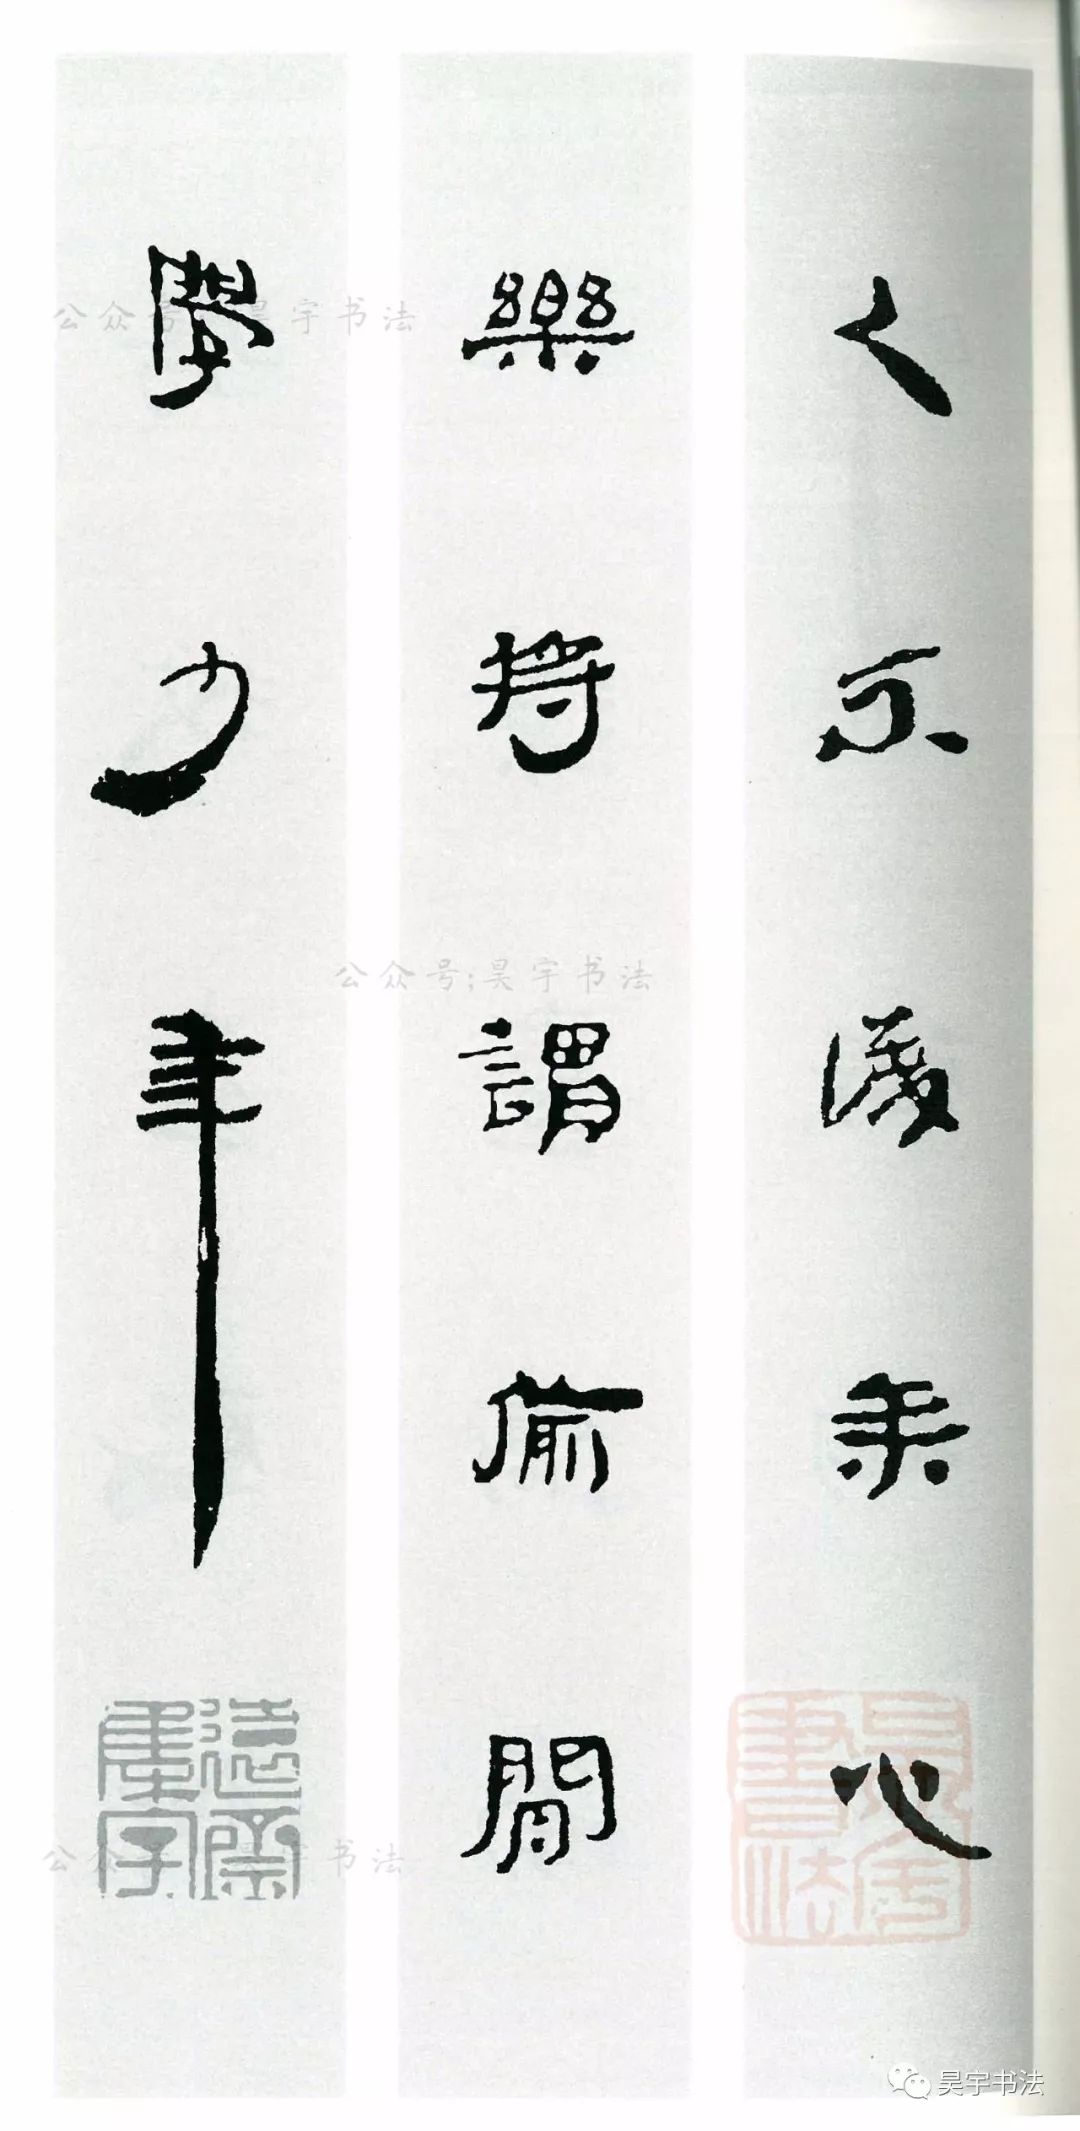 人不識余心
樂將謂偷閒
學少年
公众号;昊宇书法
公众号;昊宇书法
公众号;昊宇书法
昊宇書法
昊宇书法